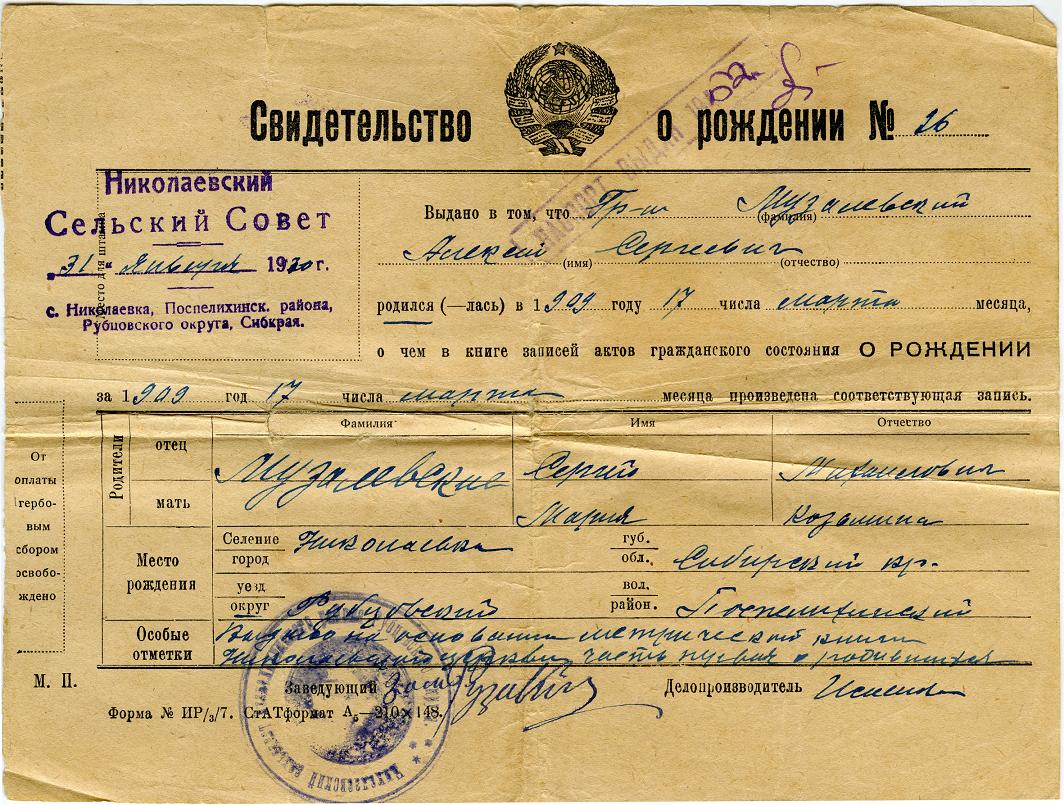 Свидетельство о рождении № 26
Николаевский
Сельский Совет
"31" Января 1930 г.
с. Николаевка, Поспелихинск. района,
Рубцовского округа, Сибкрая.
Место для штампа
ПАСПОРТ ВЫДАН
Выдано в том, что Гр-н Музалевский
(фамилия)
Алексей Сергеевич
(имя) (отчество)
родился (—лась) в 1909 году 17 числа марта месяца,
о чем в книге записей актов гражданского состояния О РОЖДЕНИИ
за 1909 год 17 числа марта месяца произведена соответствующая запись.
От
оплаты
гербо-
вым
сбором
освобо-
ждено
Родители
Фамилия Имя Отчество
отец Музалевские Сергей Михайлович
мать Мария Козьмина
Место рождения
Селение Николаевка губ.
город обл. Сибирский кр.
уезд вол.
округ Рубцовский район. Поспелихинский
Особые Выдано на основании метрической книги
отметки Николаевской церкви часть первая о родившихся
М. П.
Заведующий
Делопроизводитель
Форма № ИР/3/7. СтАТформат А5—210×148.